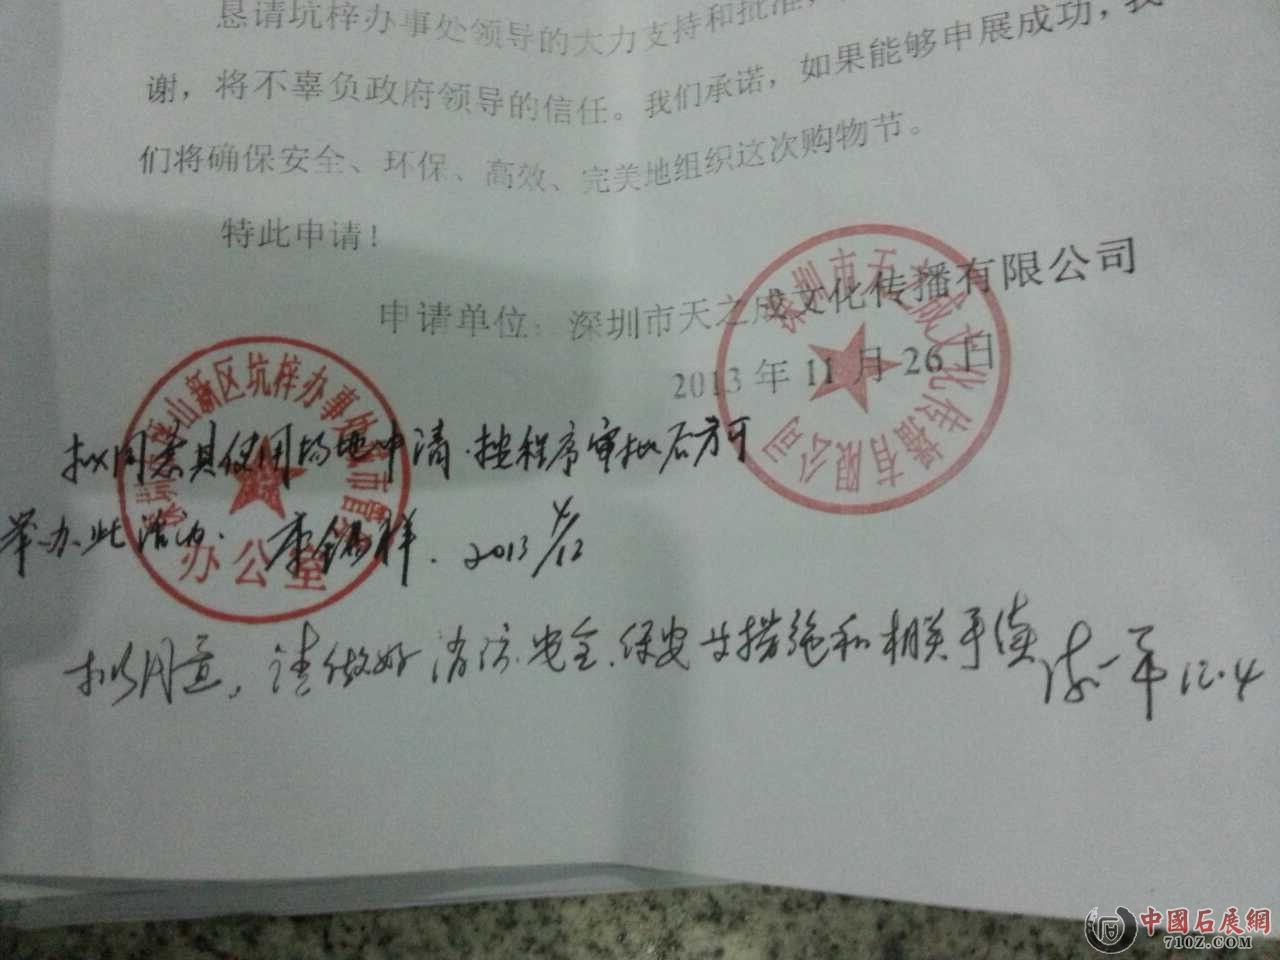 恳请坑梓办事处领导的大力支持和批准，
谢，将不辜负政府领导的信任。我们承诺，如果能够申展成功，我
们将确保安全、环保、高效、完美地组织这次购物节。
特此申请！
申请单位：深圳市天之成文化传播有限公司
2013年11月26日
深圳市天之成文化传播有限公司
坪山新区坑梓办事处城市管
办公室
拟同意其使用场地申请.按程序审批后方可
举办此活动. 李锦祥. 2013 4/12
拟同意，请做好消防.安全.保安等措施和相关手续 12.4
中國石展網
710Z.COM